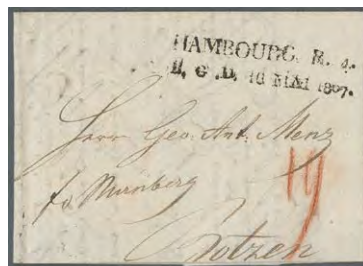 HAMBOURG. R. 4.
B. G. D. 10 MAI 1807.
Herr Geo. Ant. Menz
fo Nürnberg
Botzen